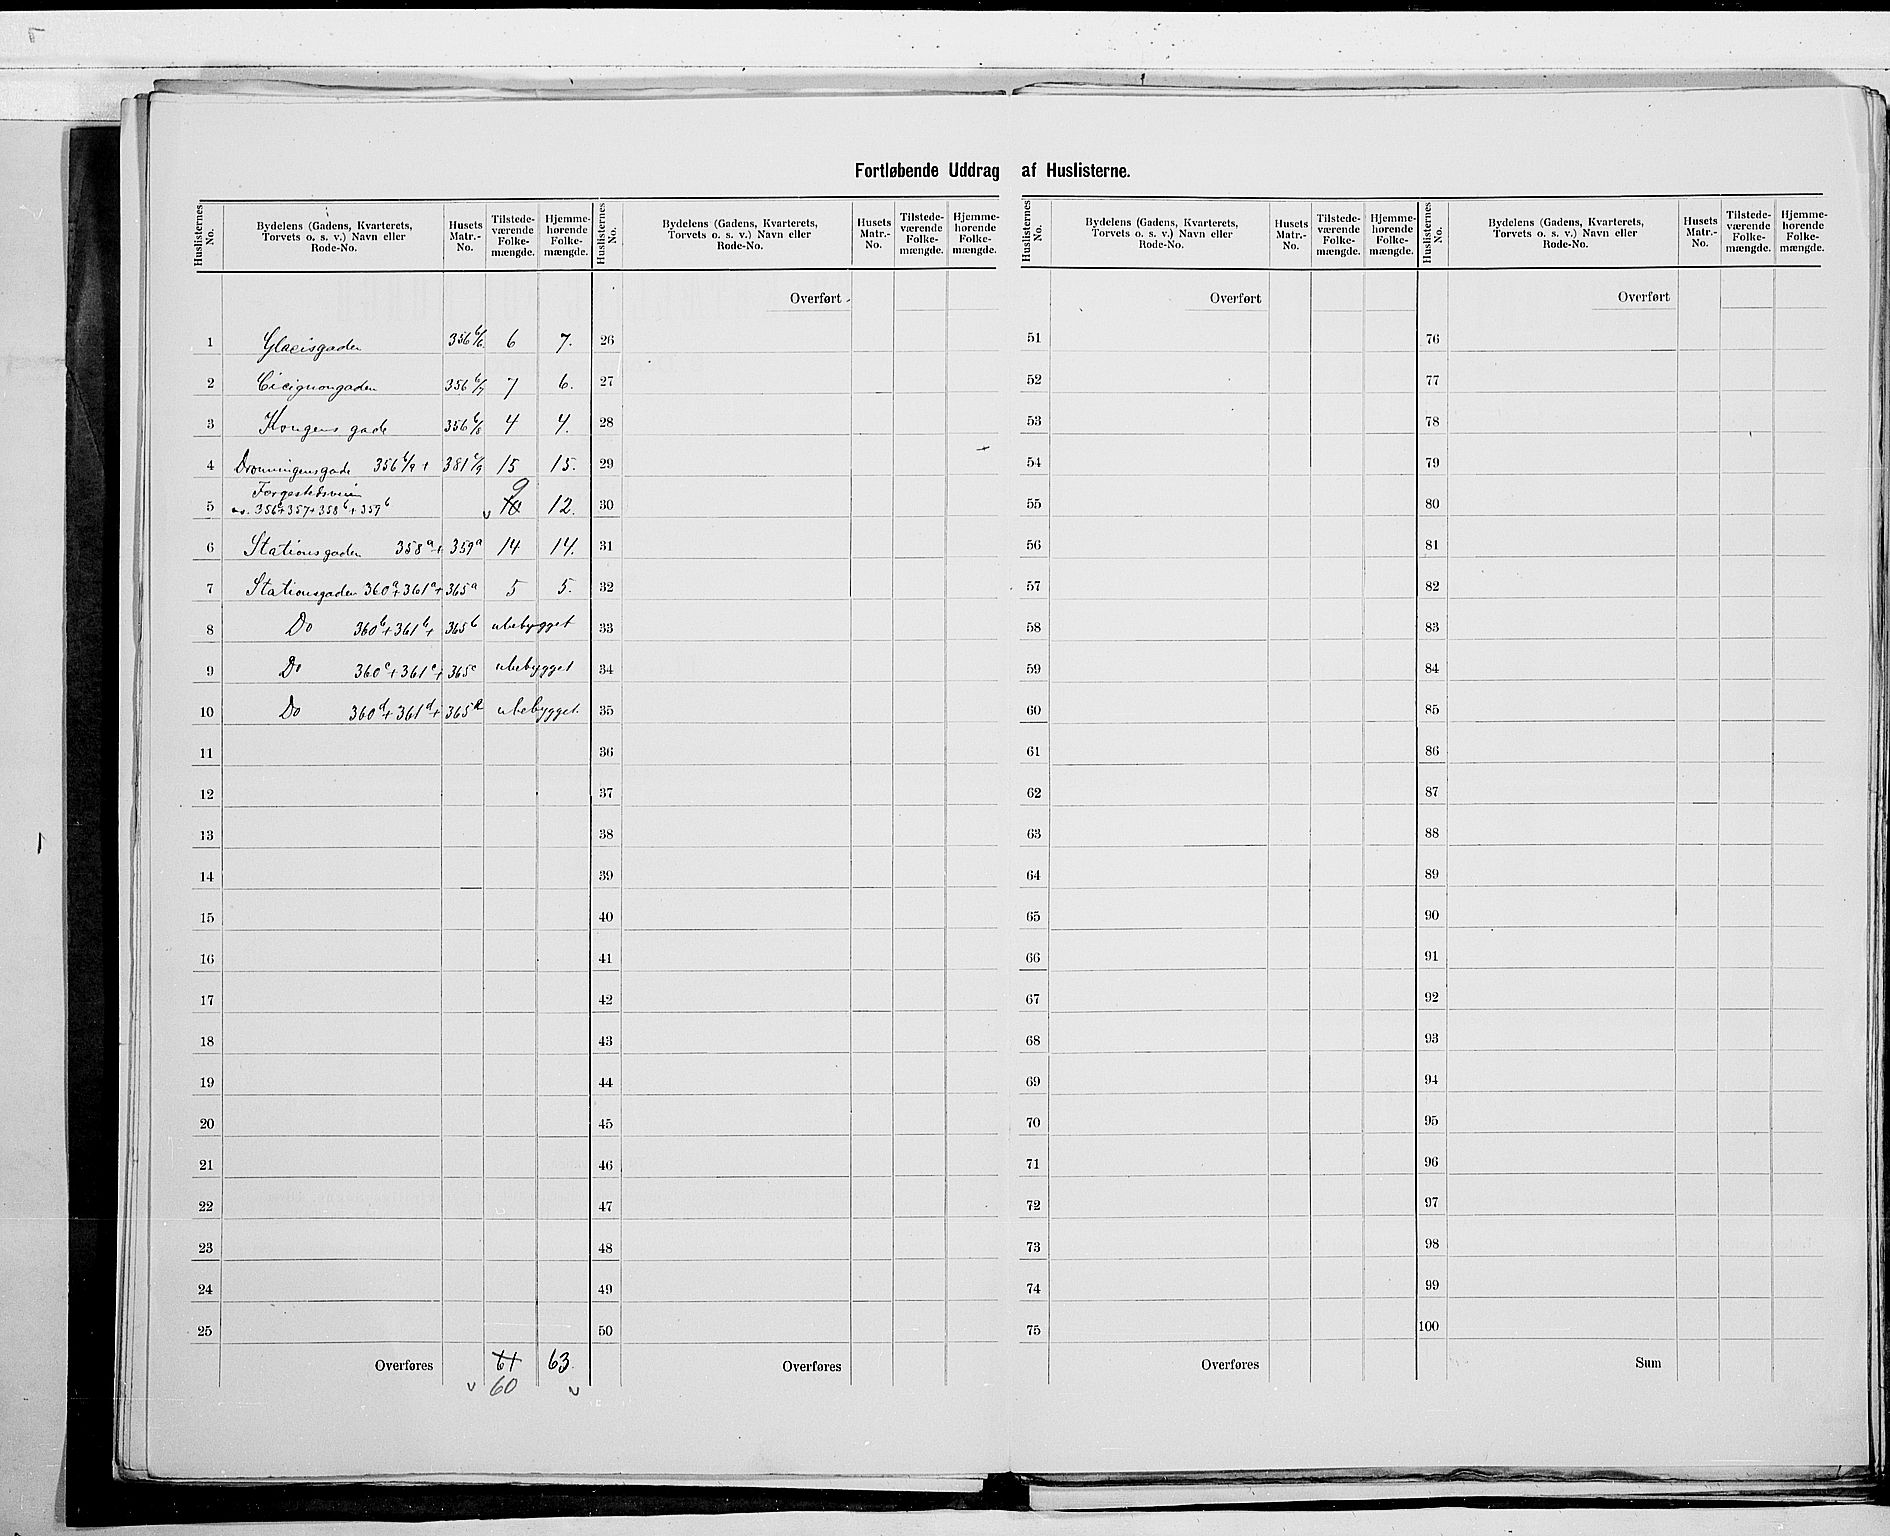 Fortløbende Uddrag af Huslisterne.
Huslisternes No. | Bydelens (Gadens, Kvarterets, Torvets o. s. v.) Navn eller Rode-No. | Husets Matr.-No. | Tilstedeværende Folkemængde. | Hjemmehørende Folkemængde.
Huslisternes No. | Bydelens (Gadens, Kvarterets, Torvets o. s. v.) Navn eller Rode-No. | Husets Matr.-No. | Tilstedeværende Folkemængde. | Hjemmehørende Folkemængde.
Huslisternes No. | Bydelens (Gadens, Kvarterets, Torvets o. s. v.) Navn eller Rode-No. | Husets Matr.-No. | Tilstedeværende Folkemængde. | Hjemmehørende Folkemængde.
Huslisternes No. | Bydelens (Gadens, Kvarterets, Torvets o. s. v.) Navn eller Rode-No. | Husets Matr.-No. | Tilstedeværende Folkemængde. | Hjemmehørende Folkemængde.
Overført Overført Overført
1 Glacisgaden 356 b/6 6 7. 26 51 76
2 Cicignongaden 356 b/7 7 6. 27 52 77
3 Kongens gade 356 b/8 4 4. 28 53 78
4 Dronningensgade 356 b/9 + 381 c/9 15 15. 29 54 79
9
5 356a+357+358b+359b 10 12. 30 55 80
6 Stationsgaden 358a + 359a 14 14. 31 56 81
7 Stationsgaden 360a+361a+365a 5 5. 32 57 82
8 Do 360b+361b+365b ubebygget 33 58 83
9 Do 360c+361c+365c ubebygget 34 59 84
10 Do 360d+361d+365d ubebygget. 35 60 85
11 36 61 86
12 37 62 87
13 38 63 88
14 39 64 89
15 40 65 90
16 41 66 91
17 42 67 92
18 43 68 93
19 44 69 94
20 45 70 95
21 46 71 96
22 47 72 97
23 48 73 98
24 49 74 99
25 50 75 100
Overføres 61 63. Overføres Overføres Sum
60